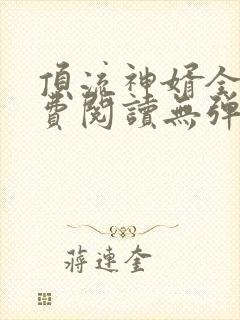 頂流神婿全
費閱讀無彈
蔣連奎